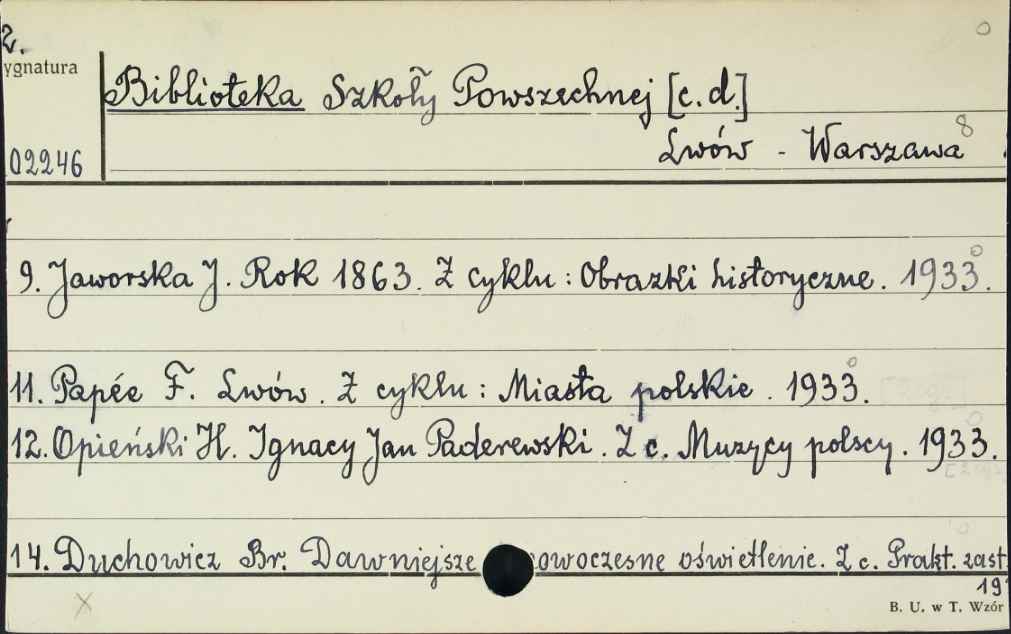 2.
ygnatura
Biblioteka Szkoły Powszechnej [c.d.]
02246
Lwów - Warszawa 8
9. Jaworska J. Rok 1863. Z cyklu: Obrazki historyczne. 1933.
11. Papée F. Lwów. Z cyklu: Miasta polskie. 1933.
12. Opieński H. Ignacy Jan Paderewski. Z c. Muzycy polscy. 1933.
14. Duchowicz Br. Dawniejsze owoczesne oświetlenie. Z c. Prakt. zast
19
B. U. w T. Wzór